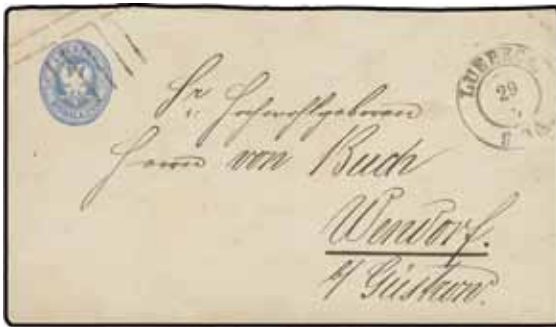 29
Sr. Hochwohlgeboren
Herrn von Buch
Wendorf.
b/ Güstrow.